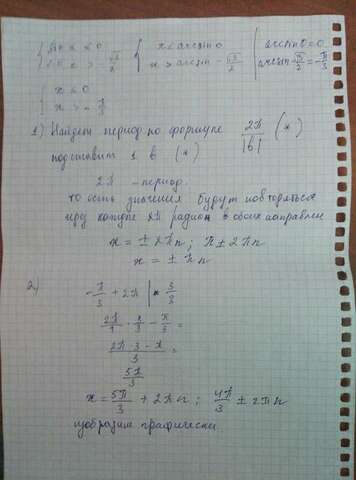 { sin x < 0 { x < arcsin 0 | arcsin 0 = 0
{ sin x > -√3/2 { x > arcsin -√3/2 | arcsin -√3/2 = -π/3
{ x < 0
{ x > -π/3
1) Найдем период по формуле 2π/|b| (*)
подставим 1 в (*)
2π - период.
то есть значения будут повторяться
каждые 2π радиан в обоих направлен
x = ± 2πn ; π ± 2πn
x = ± πn
2)
-π/3 + 2π | · 3/3
2π/1 · 3/3 - π/3 =
2π · 3 - π / 3 =
5π/3
x = 5π/3 + 2πn ; 4π/3 ± 2πn
изобразим графически